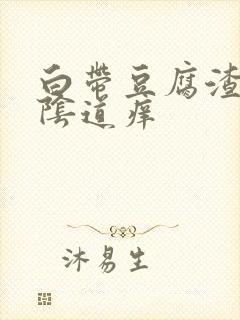 白带豆腐渣
陰道痒
沐易生